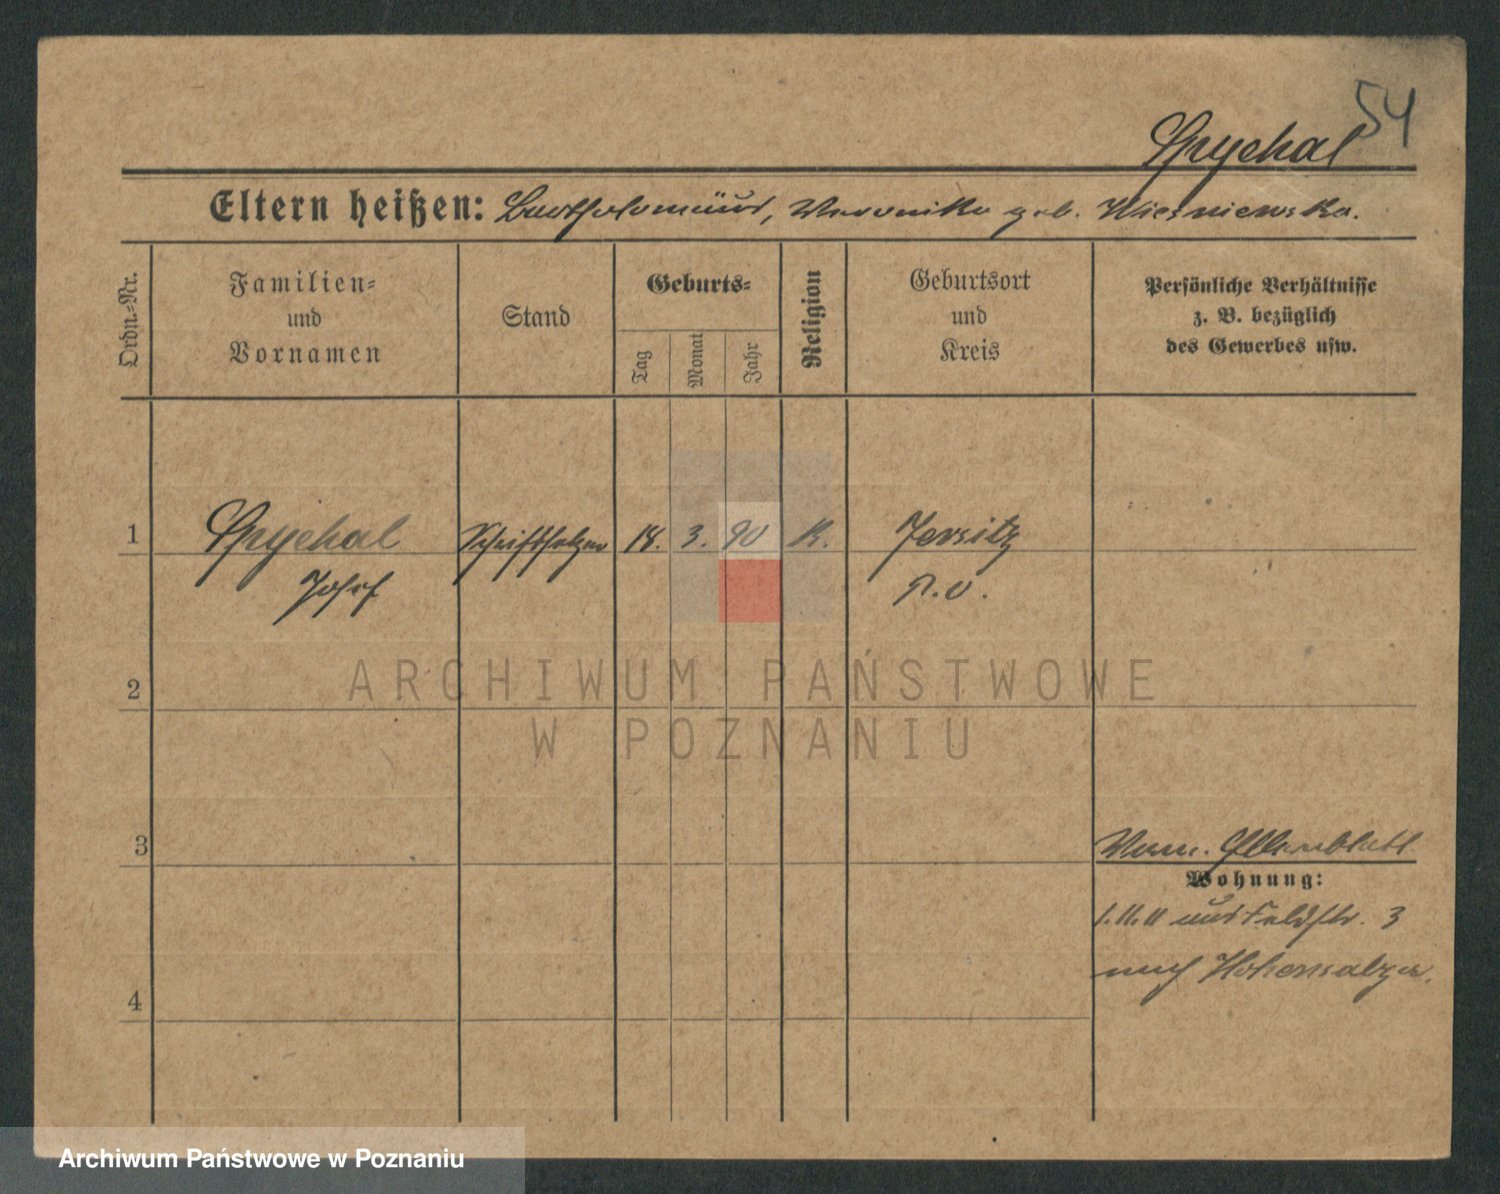 54
Spychal
Eltern heißen: Bartholomäus, Veronika geb. Wiesniewska.
Ordn.-Nr.
Familien- und Vornamen
Stand
Geburts-
Tag
Monat
Jahr
Religion
Geburtsort und Kreis
Persönliche Verhältnisse z. B. bezüglich des Gewerbes usw.
1 Spychal Schriftsetzer 18. 3. 90 K. Jersitz
Josef P. O.
2
3
Elternblatt
Wohnung:
1.11.11 aus Feldstr. 3
nach Hohensalza.
4
ARCHIWUM PAŃSTWOWE
W POZNANIU
Archiwum Państwowe w Poznaniu